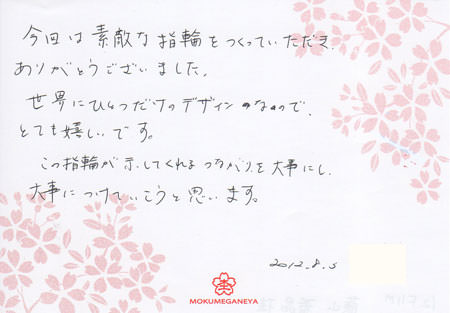 今回は素敵な指輪をつくっていただき、
ありがとうございました。
世界にひとつだけのデザインなので、
とても嬉しいです。
この指輪が示してくれるつながりを大事にし、
大事につけていこうと思います。
2012.8.5
MOKUMEGANEYA